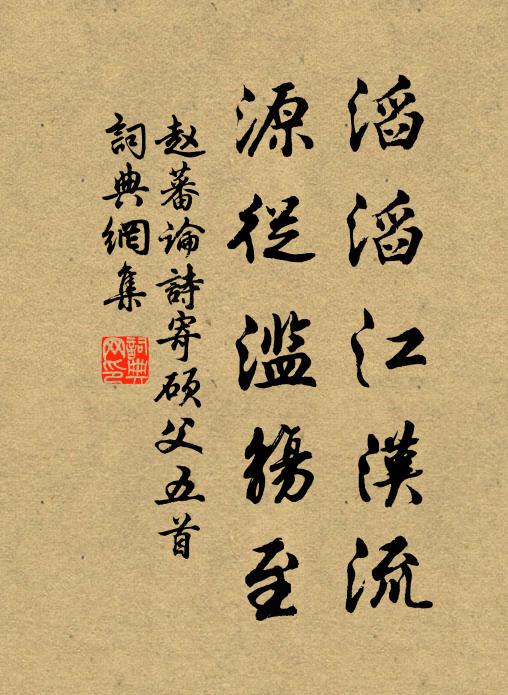 滔滔江漢流
源從濫觴至
赵蕃论詩寄硕父五首
詞典網集
詞典网印